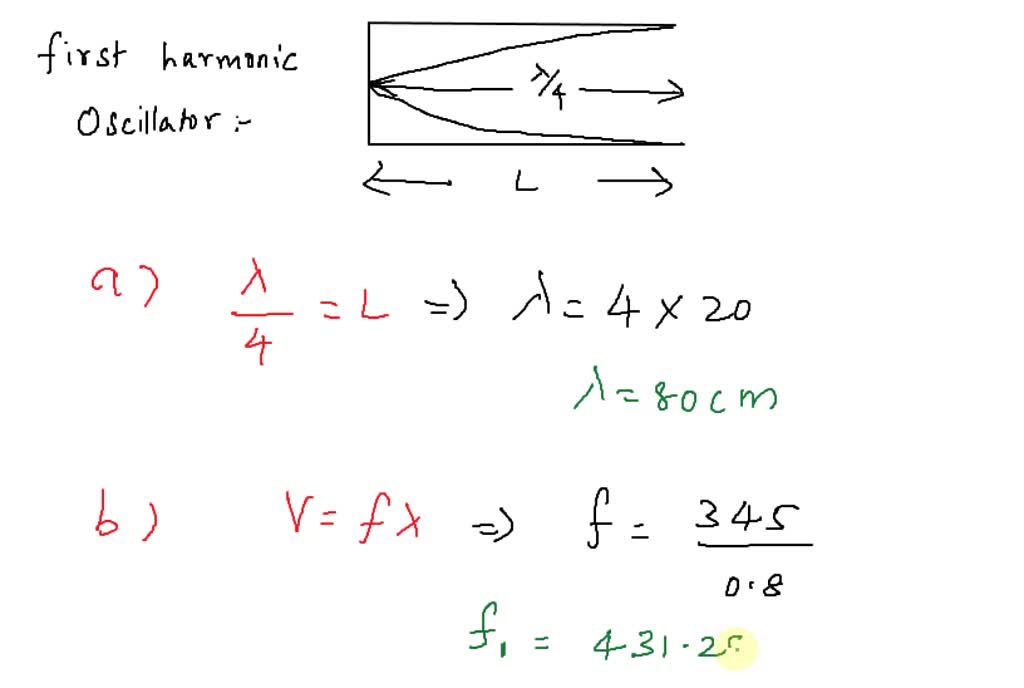 first harmonic
Oscillator :-
λ/4
L
a) λ/4 = L => λ = 4 x 20
λ = 80cm
b) V = fλ => f = 345/0.8
f₁ = 431.25